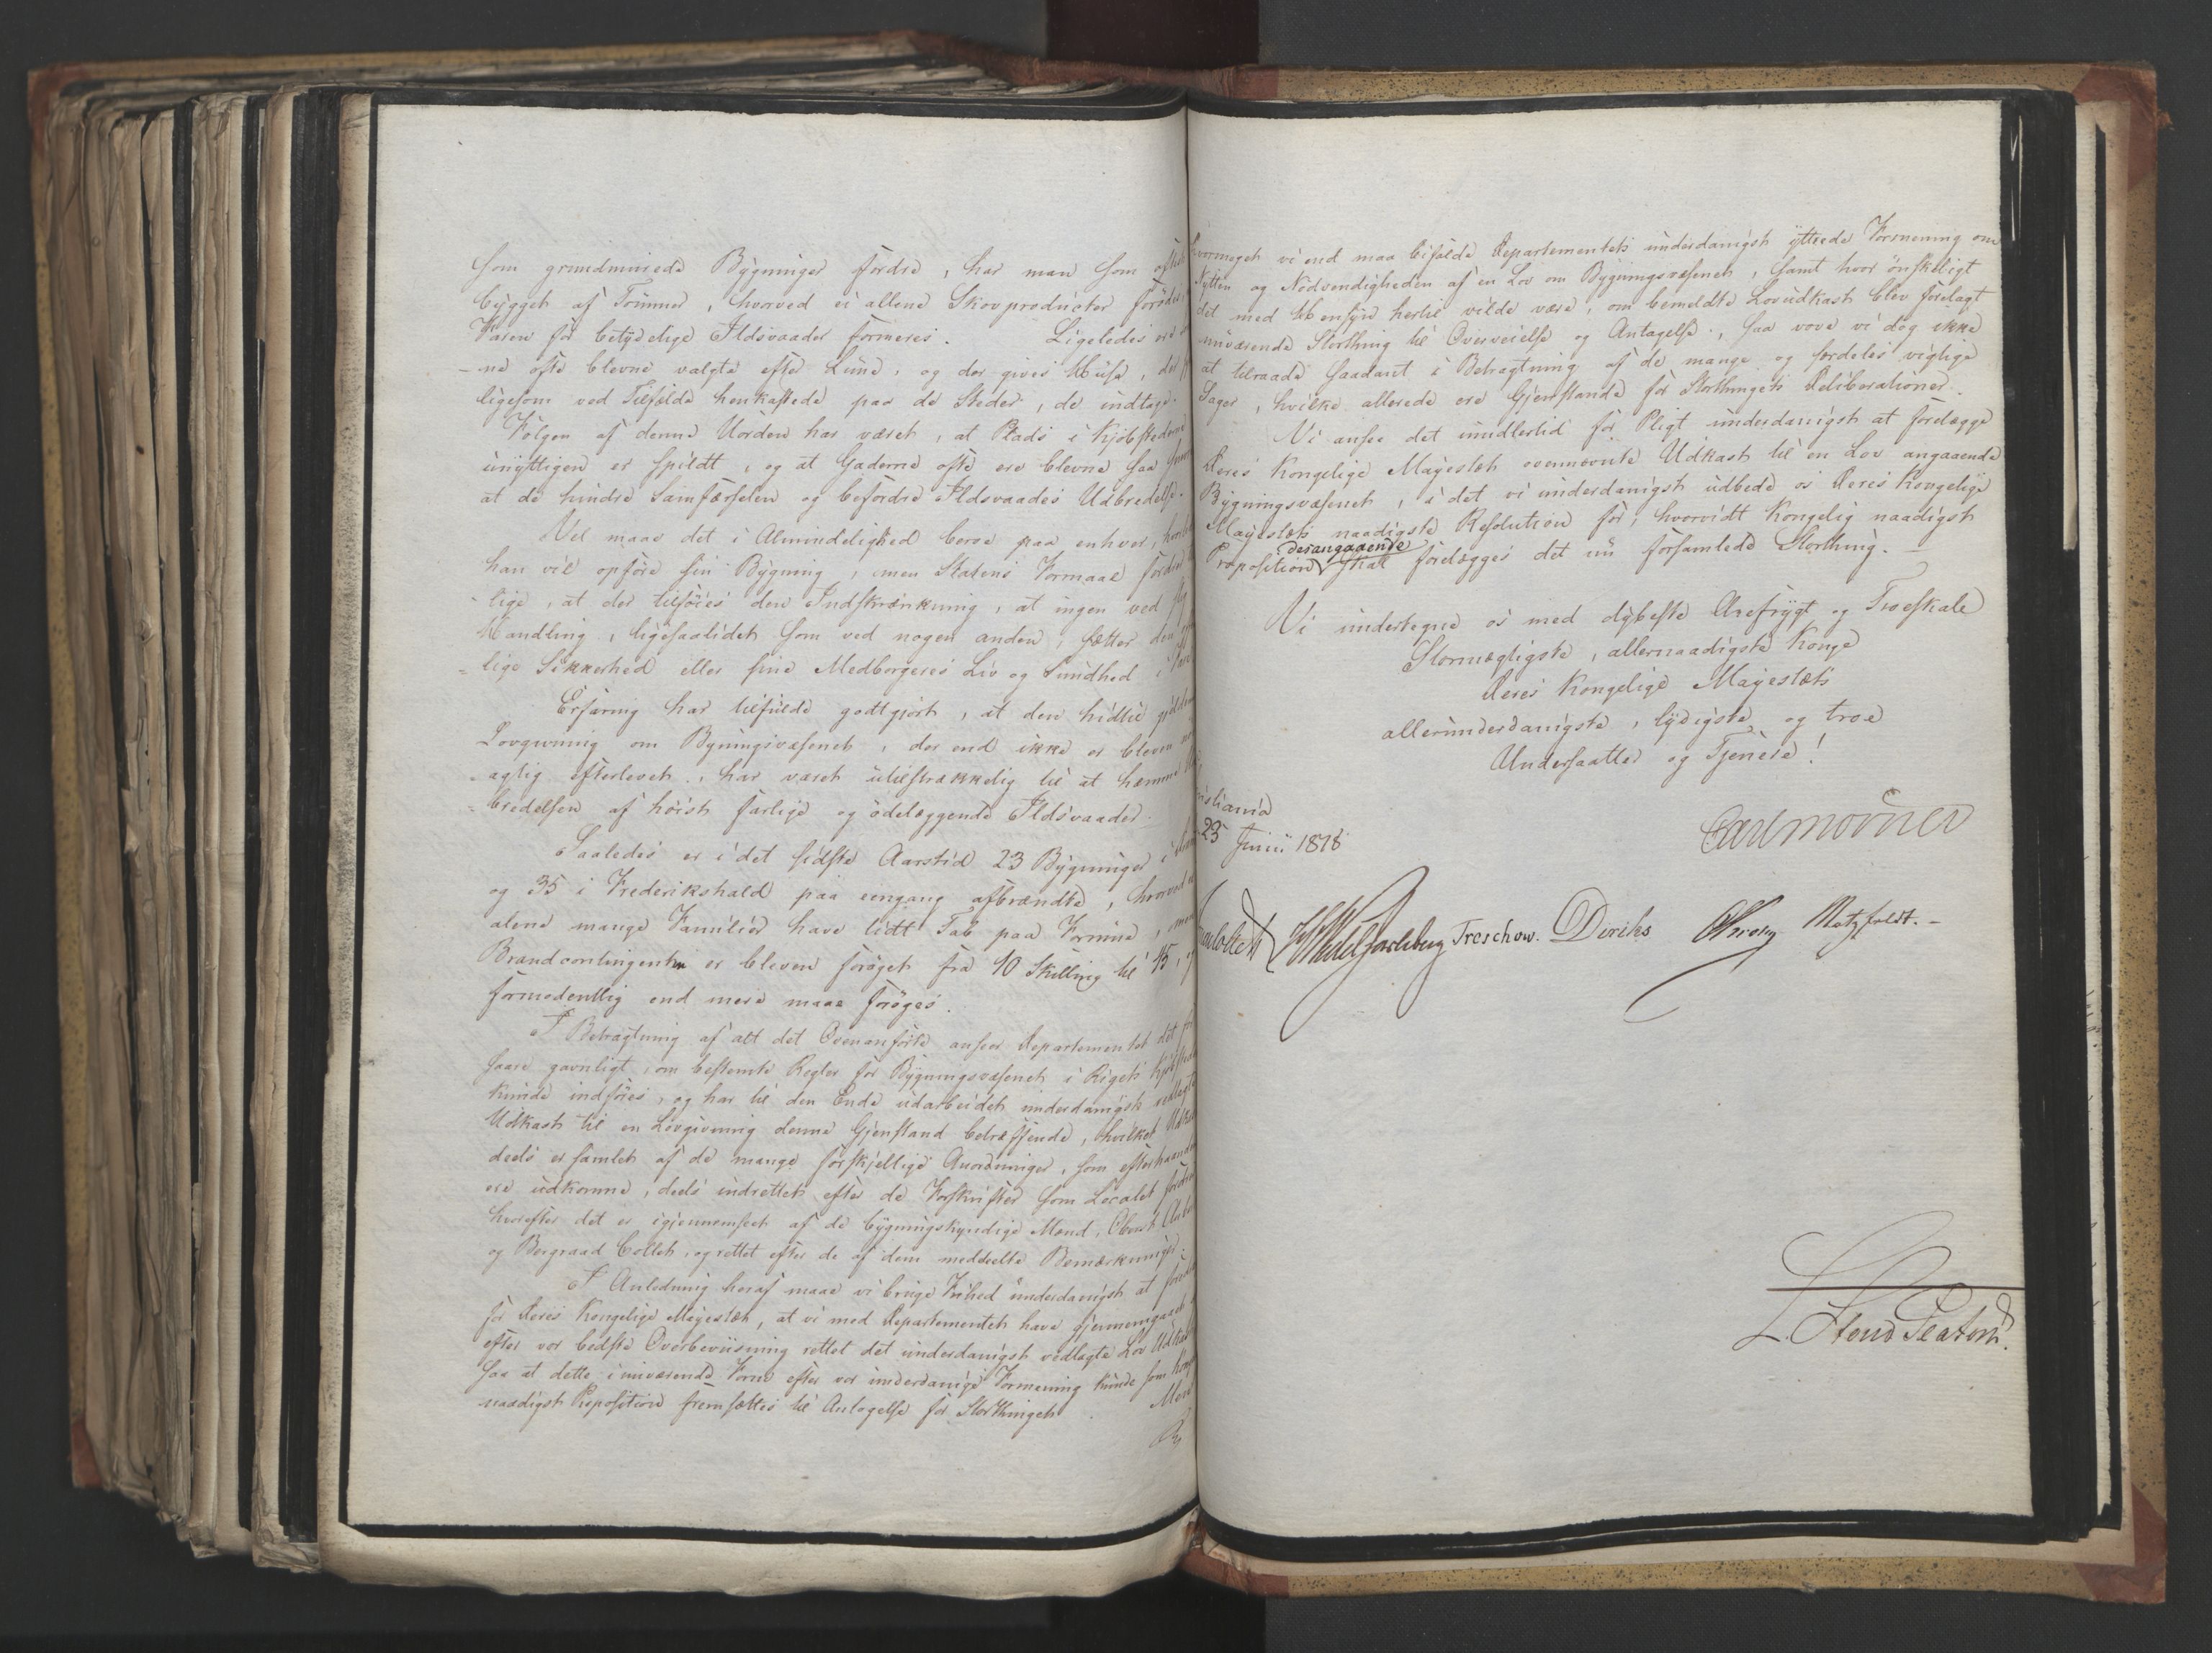 som grundmurede Bÿgninger fordre, har man som oftest
bÿgget af Tømmer, hvorved ei allene Skovproducter forödes
Faren for betÿdelige Ildsvaader formeres. Ligeledes ere
-ne ofte blevne valgte efter Lune, og der gives Huse, der
ligesom ved Tilfælde henkastede paa de Steder, de indtage.
Følgen af denne Uorden har været, at Plads i Kjöbstederne
unÿttigen er spildt, og at Gaderne ofte ere blevne saa
at de hindre Samfærselen og befordre Ildsvaades Udbredelse.
Vel maae det i Almindelighed beroe paa enhver,
han vil opföre sin Bÿgning, men Statens Formaal fordrer
-lige, at der tilföies den Indskrænkning, at ingen ved
Handling, ligesaalidet som ved nogen anden, sætter den
-lige Sikkerhed eller sine Medborgeres Liv og Sundhed i
Erfaring har tilfulde godtgjort, at den hidtil
Lovgivning om Bÿgningsvæsenet, der end ikke er bleven
-agtig efterlevet, har været utilstrækkelig til at hæmme
-bredelsen af höist farlige og ödelæggende Ildsvaader.
Saaledes er i det sidste Aarstid 23 Bÿgninger i
og 35 i Frederikshald paa eengang afbrændte, hvorved ei
alene mange Familier have lidt Tab paa Formue, men
Brandcontingenten er bleven forøget fra 10 Skilling til 45, og
formodentlig end mere maae foröges.
I Betragtning af alt det Ovenanförte anseer Departementet det for
saare gavnligt, om bestemte Regler for Bÿgningsvæsenet i Rigets Kjöbstæder
kunde indföres, og har til den Ende udarbeidet underdanigst vedlagte
Udkast til en Lovgivning denne Gjenstand betræffende, hvilket Udkast
deels er samlet af de mange forskjellige Anordninger, som efterhaanden
ere udkomne, deels indrettet efter de Forskrifter som Localet fordrer
hvorefter det er igjennemseet af de bÿgningskÿndige Mænd, Oberst
og Bergraad Collett, og rettet efter de af dem meddeelte Bemærkninger.
I Anledning heraf maae vi bruge Frihed underdanigst at
for Deres Kongelige Majestæt, at vi med Departementet have gjennemgaaet
efter vor bedste Overbeviisning rettet det underdanigst vedlagte Lov Udkast
saa at dette i nuværende Form efter vor underdanige Formening kunde som
naadigst Proposition fremsættes til Antagelse for Storthinget.
Hvormeget vi end maa bifalde Departementets underdanigst ÿttrede Formening om
Nÿtten og Nödvendigheden af en Lov om Bÿgningsvæsenet, samt hvor önskeligt
det med Hensÿn hertil vilde være, om bemeldte Lovudkast blev forelagt
nuværende Storthing til Overveielse og Antagelse, saa vove vi dog ikke
at tilraade saadant i Betragtning af de mange og særdeles vigtige
Sager, hvilke allerede ere Gjenstande for Storthingets Deliberationer.
Vi ansee det imidlertid for Pligt underdanigst at forelægge
Deres Kongelige Majestæt ovennævnte Udkast til en Lov angaaende
Bÿgningsvæsenet, i det vi underdanigst udbede os Deres Kongelige
Majestæts naadigste Resolution for, hvorvidt Kongelig naadigst
derangaaende
Proposition skal forelægges det nu forsamlede Storthing.
Vi undertegne os med dÿbeste Ærefrÿgt og Troeskab
Stormægtigste, allernaadigste Konge
Deres Kongelige Majestæts
allerunderdanigste, lÿdigste og troe
Undersaatter og Tjenere!
Christiania
23 Junii 1818
Carl Mörner
Wedel Jarlsberg Treschow. Diriks Motzfeldt. -